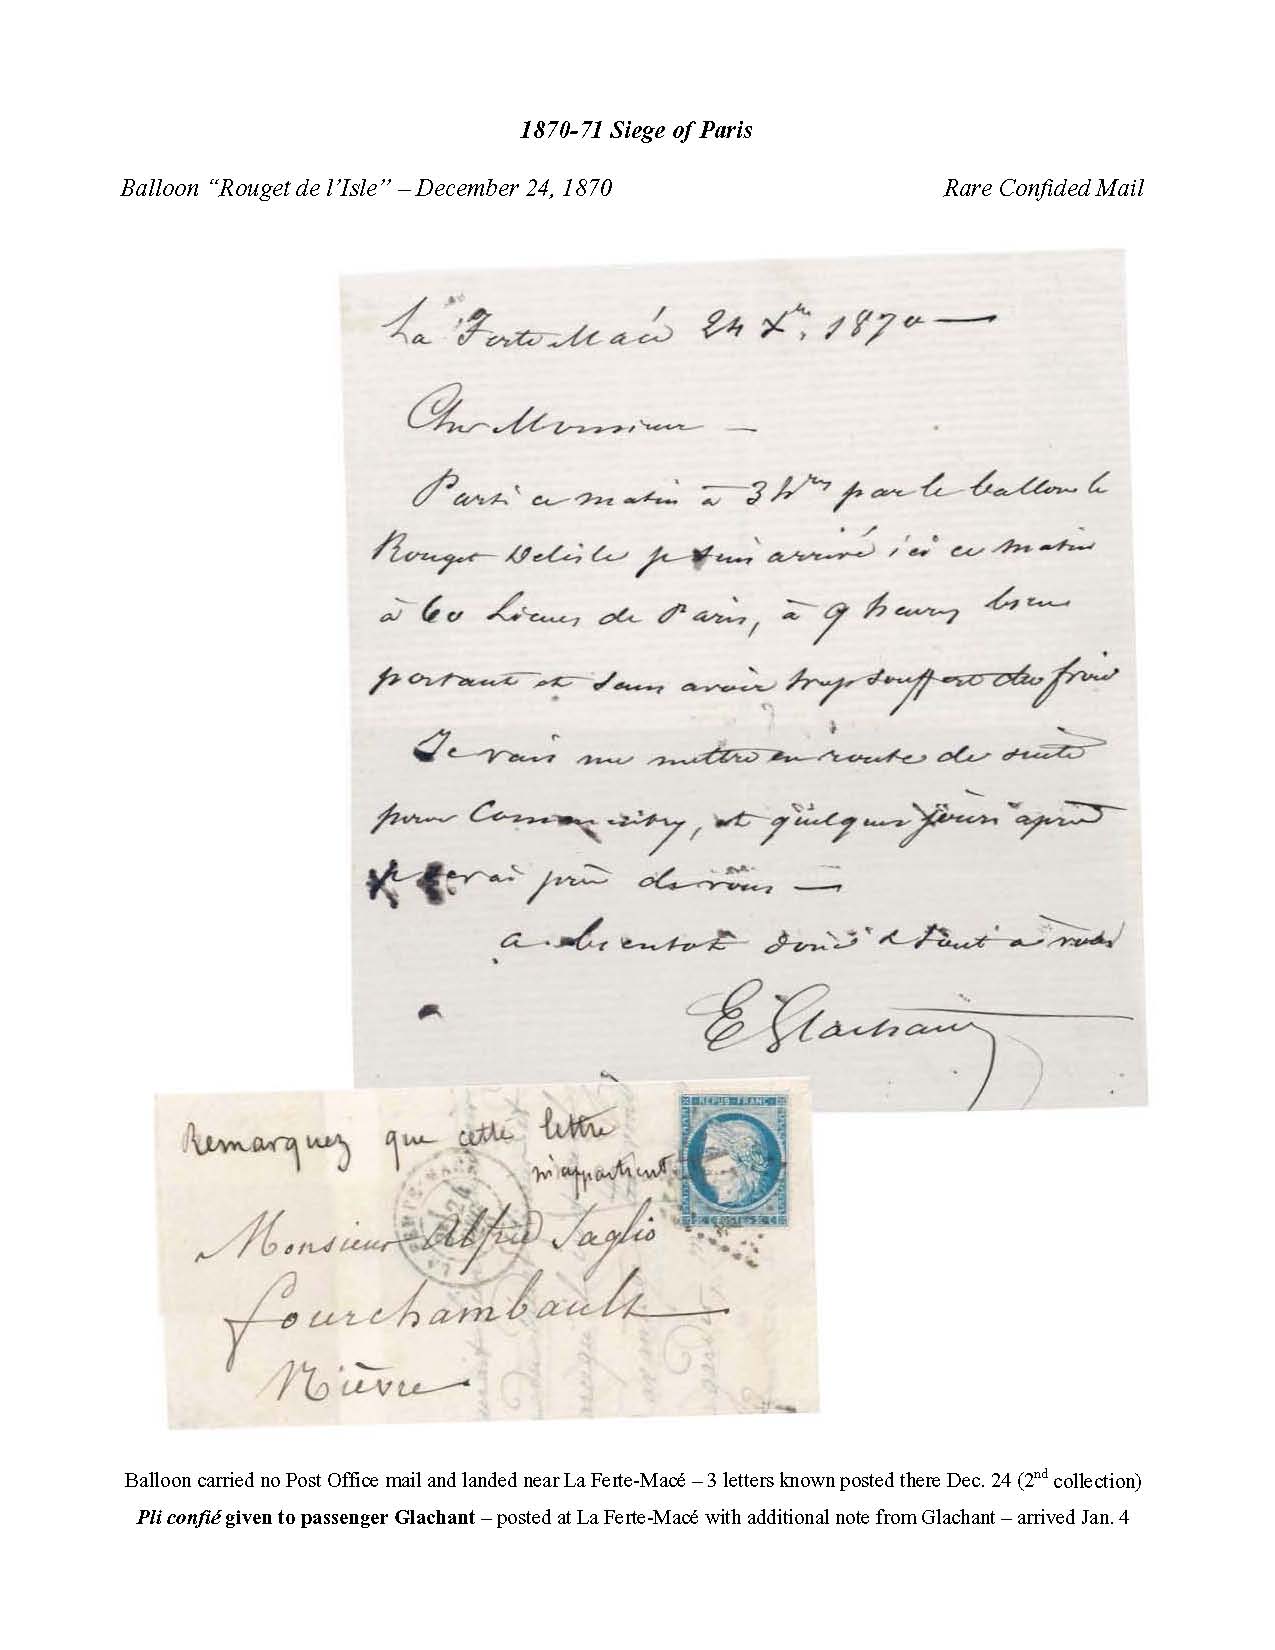 1870-71 Siege of Paris
Balloon “Rouget de l’Isle” – December 24, 1870
Rare Confided Mail
La Ferte Macé 24 Xbre 1870 —
Cher Monsieur —
Parti ce matin à 3 hres par le ballon le
Rouget Delisle je suis arrivé ici ce matin
à 60 Lieues de Paris, à 9 heures bien
portant et sans avoir trop souffert du froid
Je vais me mettre en route de suite
pour Commentry, et quelques jours après
je serai près de vous —
a bientot donc & tout à vous
E Glachant
Remarquez que cette lettre
m'appartient
REPUB FRANC
POSTES
Monsieur Alfred Saglio
fourchambault
Nièvre
Balloon carried no Post Office mail and landed near La Ferte-Macé – 3 letters known posted there Dec. 24 (2nd collection)
Pli confié given to passenger Glachant – posted at La Ferte-Macé with additional note from Glachant – arrived Jan. 4